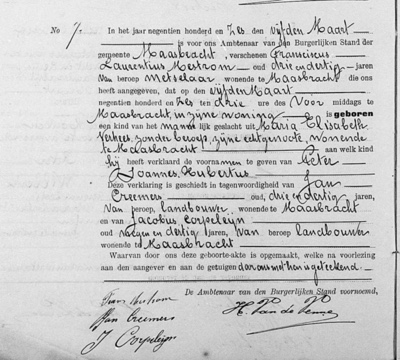 No 7. In het jaar negentien honderd en zes den vijfden Maart
is voor ons Ambtenaar van den Burgerlijken Stand der
gemeente Maasbracht, verschenen Franciscus
Laurentius Mestrom oud drie en dertig jaren
van beroep metselaar, wonende te Maasbracht die ons
heeft aangegeven, dat op den vijfden Maart
negentien honderd en zes ten drie ure des voor middags te
Maasbracht in zijne woning is geboren
een kind van het mannelijk geslacht uit Maria Elisabeth
Verhees, zonder beroep, zijne echtgenoote, wonende
te Maasbracht aan welk kind
hij heeft verklaard de voornamen te geven van Peter
Joannes Hubertus
Deze verklaring is geschiedt in tegenwoordigheid van Jan
Creemers oud, drie en dertig jaren,
van beroep landbouwer wonende te Maasbracht
en van Jacobus Corpeleijn
oud negen en dertig jaren, van beroep landbouwer
wonende te Maasbracht
Waarvan door ons deze geboorte-akte is opgemaakt, welke na voorlezing
aan den aangever en aan de getuigen door ons met hen is geteekend
De Ambtenaar van den Burgerlijken Stand voornoemd,
Jan Creemers
J Corpeleijn